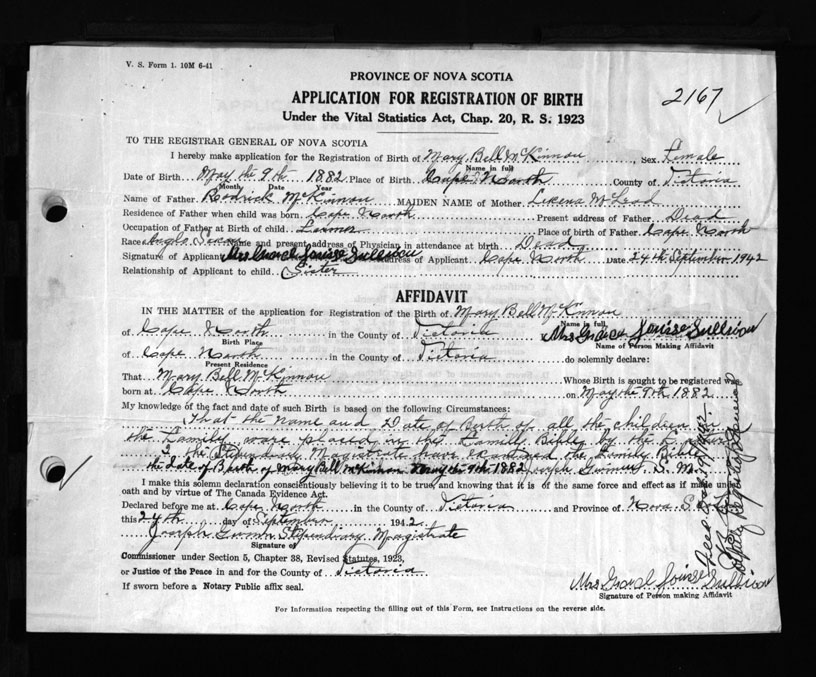 V. S. Form 1. 10M 6-41
PROVINCE OF NOVA SCOTIA
APPLICATION FOR REGISTRATION OF BIRTH
2167
Under the Vital Statistics Act, Chap. 20, R. S. 1923
TO THE REGISTRAR GENERAL OF NOVA SCOTIA
I hereby make application for the Registration of Birth of Mary Bell McKinnon, Sex Female
Name in full
Date of Birth May the 9th 1882 Place of Birth Cape North County of Victoria
Month Date Year
Name of Father Rodrick McKinnon MAIDEN NAME of Mother McLeod
Residence of Father when child was born Cape North Present address of Father Dead
Occupation of Father at Birth of child Place of birth of Father Cape North
Race Anglo Name and present address of Physician in attendance at birth Dead
Signature of Applicant Mrs Louise Sullivan Address of Applicant Cape North Date 24th September 1942
Relationship of Applicant to child Sister
AFFIDAVIT
IN THE MATTER of the application for Registration of the Birth of Mary Bell McKinnon
Name in full
of Cape North in the County of Victoria Mrs Grace Louise Sullivan
Birth Place Name of Person Making Affidavit
of Cape North in the County of Victoria do solemnly declare:
Present Residence
That Mary Bell McKinnon Whose Birth is sought to be registered was
born at Cape North on May the 9th 1882
My knowledge of the fact and date of such Birth is based on the following Circumstances:
That the Name and Date of Birth of all the children in
the Family were placed in the Family Bible by the
I the Stipendiary Magistrate have examined the Family Bible
the date of Birth of Mary Bell McKinnon May the 9th 1882 Joseph S. M.
I make this solemn declaration conscientiously believing it to be true, and knowing that it is of the same force and effect as if made under
oath and by virtue of The Canada Evidence Act.
Declared before me at Cape North in the County of Victoria and Province of Nova S.
this 24th day of September 1942
Joseph Stipendiary Magistrate
Signature of
Commissioner under Section 5, Chapter 38, Revised Statutes, 1923,
or Justice of the Peace in and for the County of Victoria
If sworn before a Notary Public affix seal.
Mrs Grace Louise Sullivan
Signature of Person making Affidavit
For Information respecting the filling out of this Form, see Instructions on the reverse side.